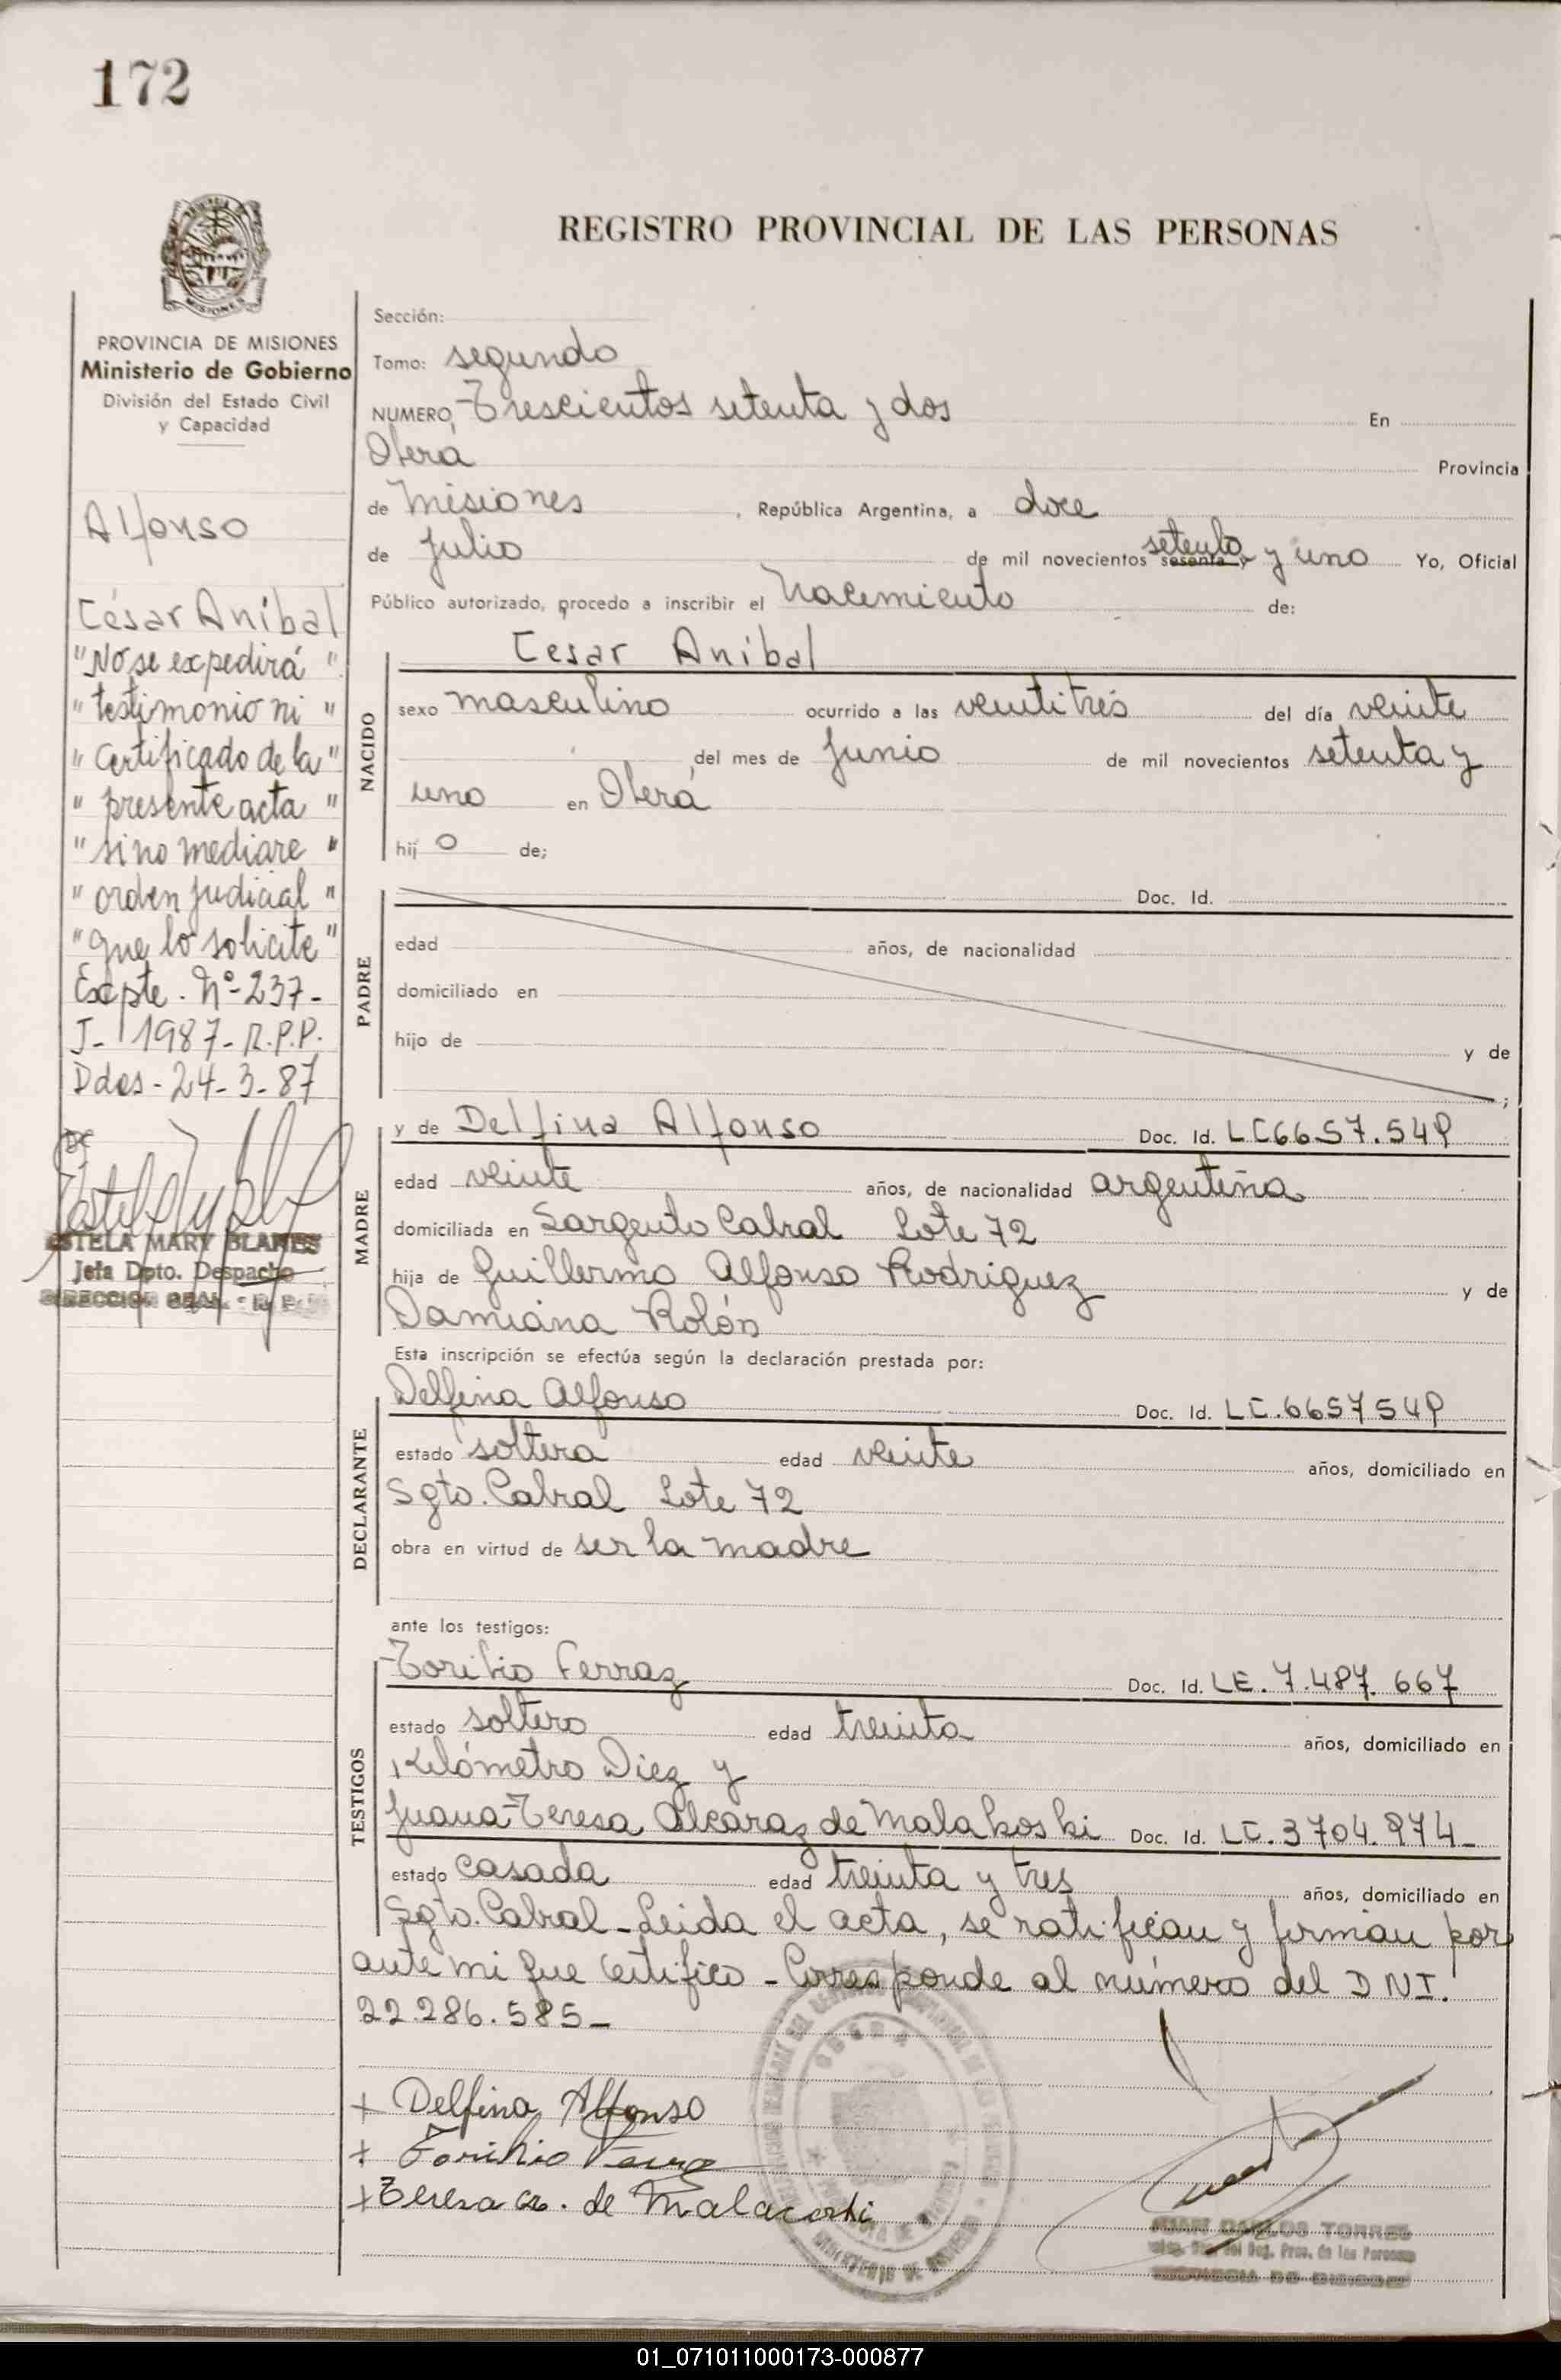 172
REGISTRO PROVINCIAL DE LAS PERSONAS
MISIONES
PROVINCIA DE MISIONES
Ministerio de Gobierno
División del Estado Civil
y Capacidad
Alfonso
César Aníbal
"No se expedirá"
"testimonio ni"
"Certificado de la"
"presente acta"
"sino mediare"
"orden judicial"
"que lo solicite"
Expte. Nº-237-
J-1987-R.P.P.
Ddes-24-3-87
ESTELA MARY BLANES
Jefa Dpto. Despacho
DIRECCION GRAL.
Sección:
Tomo: segundo
NUMERO, Trescientos setenta y dos En
Oberá Provincia
de Misiones, República Argentina, a doce
de Julio de mil novecientos sesenta y setenta y uno Yo, Oficial
Público autorizado, procedo a inscribir el Nacimiento de:
NACIDO
Cesar Aníbal
sexo masculino ocurrido a las veintitrés del día veinte
del mes de Junio de mil novecientos setenta y
uno en Oberá
hij o de;
PADRE
Doc. Id.
edad años, de nacionalidad
domiciliado en
hijo de y de
;
MADRE
y de Delfina Alfonso Doc. Id. LC6657.549
edad veinte años, de nacionalidad argentina
domiciliada en Sargento Cabral Lote 72
hija de Guillermo Alfonso Rodriguez y de
Damiana Rolón
Esta inscripción se efectúa según la declaración prestada por:
DECLARANTE
Delfina Alfonso Doc. Id. LC.6657549
estado soltera edad veinte años, domiciliado en
Sgto. Cabral Lote 72
obra en virtud de ser la madre
ante los testigos:
TESTIGOS
Toribio Ferraz Doc. Id. LE. 7.487.667
estado soltero edad treinta años, domiciliado en
Kilómetro Diez y
Juana Teresa Alcaraz de Malakoski Doc. Id. LC. 3704.974-
estado casada edad treinta y tres años, domiciliado en
Sgto. Cabral - Leida el acta, se ratifican y firman por
ante mi que certifico - Corresponde al número del DNI.
22.286.585-
+ Delfina Alfonso
+ Toribio Ferraz
+ Teresa de Malacoski
JUAN CARLOS TORRES
01_071011000173-000877